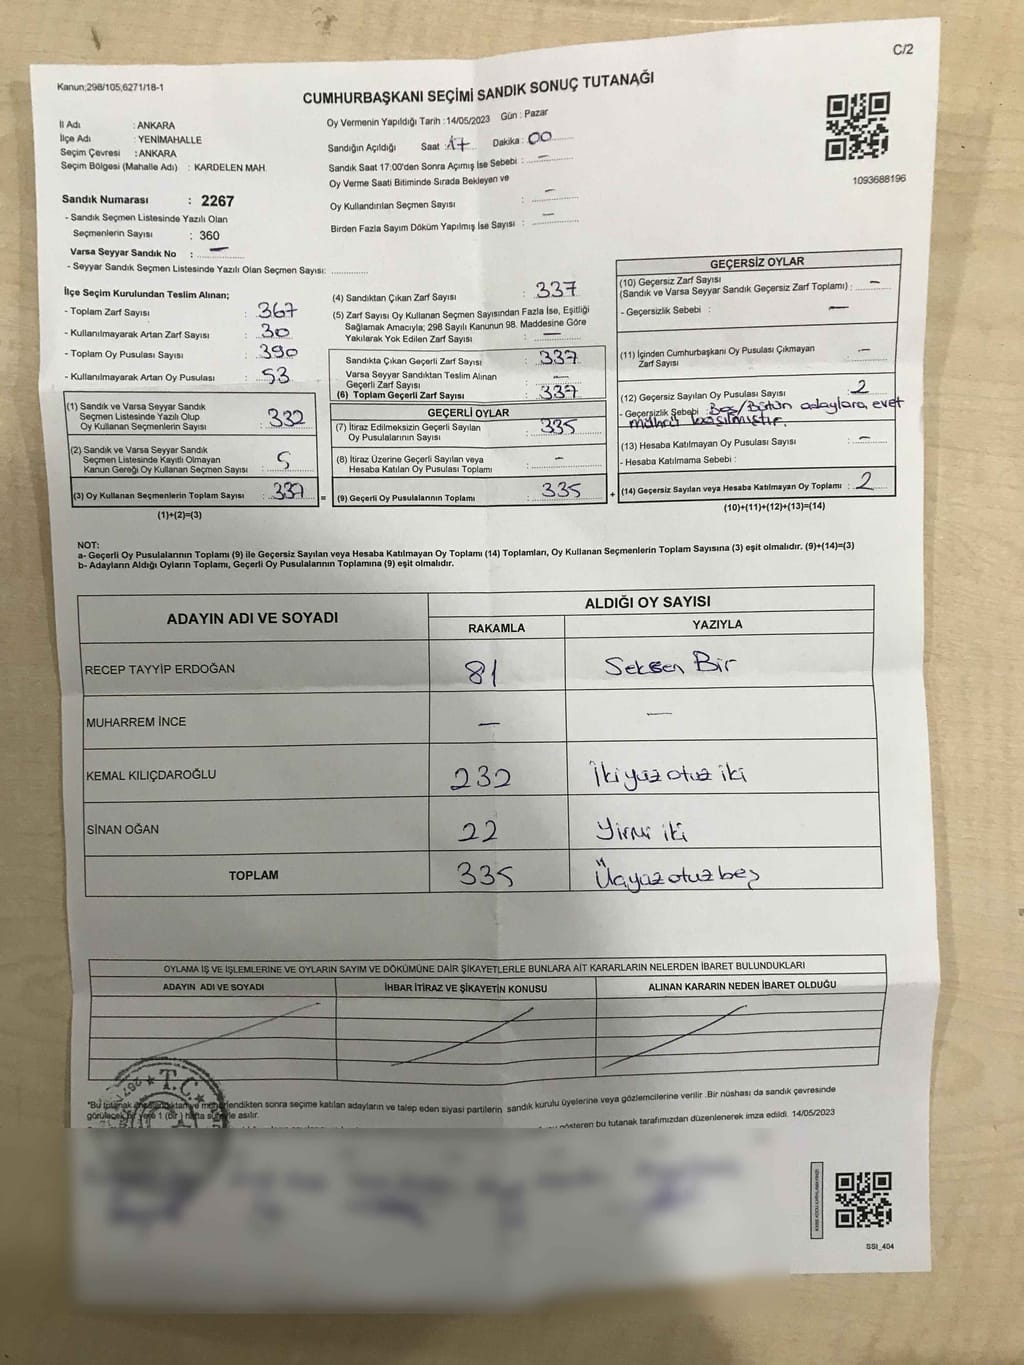 C/2
Kanun;298/105,6271/18-1
CUMHURBAŞKANI SEÇİMİ SANDIK SONUÇ TUTANAĞI
İl Adı : ANKARA
İlçe Adı : YENİMAHALLE
Seçim Çevresi : ANKARA
Seçim Bölgesi (Mahalle Adı) : KARDELEN MAH.
Oy Vermenin Yapıldığı Tarih :14/05/2023 Gün : Pazar
Sandığın Açıldığı Saat : 17 Dakika : 00
Sandık Saat 17:00'den Sonra Açımış İse Sebebi : —
Oy Verme Saati Bitiminde Sırada Bekleyen ve
Oy Kullandırılan Seçmen Sayısı : —
Birden Fazla Sayım Döküm Yapılmış İse Sayısı : —
1093688196
Sandık Numarası : 2267
- Sandık Seçmen Listesinde Yazılı Olan
Seçmenlerin Sayısı : 360
Varsa Seyyar Sandık No : —
- Seyyar Sandık Seçmen Listesinde Yazılı Olan Seçmen Sayısı: ................
İlçe Seçim Kurulundan Teslim Alınan;
- Toplam Zarf Sayısı : 367
- Kullanılmayarak Artan Zarf Sayısı : 30
- Toplam Oy Pusulası Sayısı : 390
- Kullanılmayarak Artan Oy Pusulası : 53
(1) Sandık ve Varsa Seyyar Sandık
Seçmen Listesinde Yazılı Olup
Oy Kullanan Seçmenlerin Sayısı : 332
(2) Sandık ve Varsa Seyyar Sandık
Seçmen Listesinde Kayıtlı Olmayan
Kanun Gereği Oy Kullanan Seçmen Sayısı : 5
(3) Oy Kullanan Seçmenlerin Toplam Sayısı : 337 =
(1)+(2)=(3)
(4) Sandıktan Çıkan Zarf Sayısı : 337
(5) Zarf Sayısı Oy Kullanan Seçmen Sayısından Fazla İse, Eşitliği
Sağlamak Amacıyla; 298 Sayılı Kanunun 98. Maddesine Göre
Yakılarak Yok Edilen Zarf Sayısı : —
Sandıkta Çıkan Geçerli Zarf Sayısı : 337
Varsa Seyyar Sandıktan Teslim Alınan
Geçerli Zarf Sayısı : —
(6) Toplam Geçerli Zarf Sayısı : 337
GEÇERLİ OYLAR
(7) İtiraz Edilmeksizin Geçerli Sayılan
Oy Pusulalarının Sayısı : 335
(8) İtiraz Üzerine Geçerli Sayılan veya
Hesaba Katılan Oy Pusulası Toplamı : —
(9) Geçerli Oy Pusulalarının Toplamı : 335 +
GEÇERSİZ OYLAR
(10) Geçersiz Zarf Sayısı
(Sandık ve Varsa Seyyar Sandık Geçersiz Zarf Toplamı) : —
- Geçersizlik Sebebi : —
(11) İçinden Cumhurbaşkanı Oy Pusulası Çıkmayan
Zarf Sayısı : —
(12) Geçersiz Sayılan Oy Pusulası Sayısı : 2
- Geçersizlik Sebebi : Boş/Bütün adaylara evet
mührü basılmıştır.
(13) Hesaba Katılmayan Oy Pusulası Sayısı : —
- Hesaba Katılmama Sebebi :
(14) Geçersiz Sayılan veya Hesaba Katılmayan Oy Toplamı : 2
(10)+(11)+(12)+(13)=(14)
NOT:
a- Geçerli Oy Pusulalarının Toplamı (9) ile Geçersiz Sayılan veya Hesaba Katılmayan Oy Toplamı (14) Toplamları, Oy Kullanan Seçmenlerin Toplam Sayısına (3) eşit olmalıdır. (9)+(14)=(3)
b- Adayların Aldığı Oyların Toplamı, Geçerli Oy Pusulalarının Toplamına (9) eşit olmalıdır.
ADAYIN ADI VE SOYADI ALDIĞI OY SAYISI
RAKAMLA YAZIYLA
RECEP TAYYİP ERDOĞAN 81 Seksen Bir
MUHARREM İNCE — —
KEMAL KILIÇDAROĞLU 232 İkiyüz otuz iki
SİNAN OĞAN 22 Yirmi iki
TOPLAM 335 Üçyüz otuz beş
OYLAMA İŞ VE İŞLEMLERİNE VE OYLARIN SAYIM VE DÖKÜMÜNE DAİR ŞİKAYETLERLE BUNLARA AİT KARARLARIN NELERDEN İBARET BULUNDUKLARI
ADAYIN ADI VE SOYADI İHBAR İTİRAZ VE ŞİKAYETİN KONUSU ALINAN KARARIN NEDEN İBARET OLDUĞU
"Bu tutanak mühürlendikten sonra seçime katılan adayların ve talep eden siyasi partilerin sandık kurulu üyelerine veya gözlemcilerine verilir .Bir nüshası da sandık çevresinde
görülecek bir yere 1 (bir) hafta süreyle asılır.
gösteren bu tutanak tarafımızdan düzenlenerek imza edildi. 14/05/2023
T.C.
SSI_404